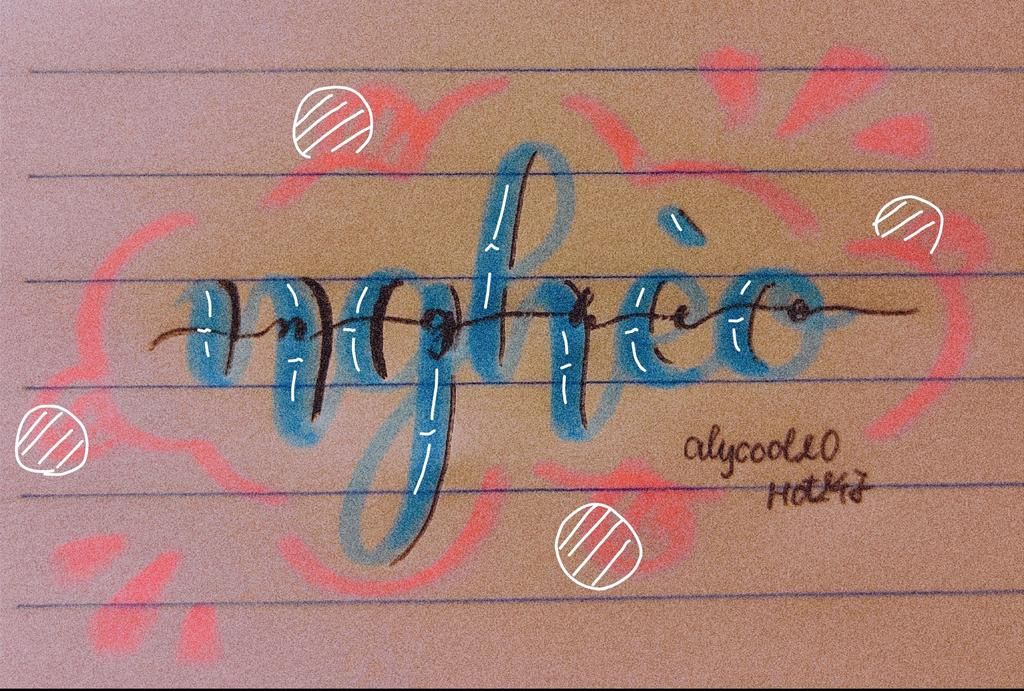 nghèo
n g h e o
alycool20
Hot247